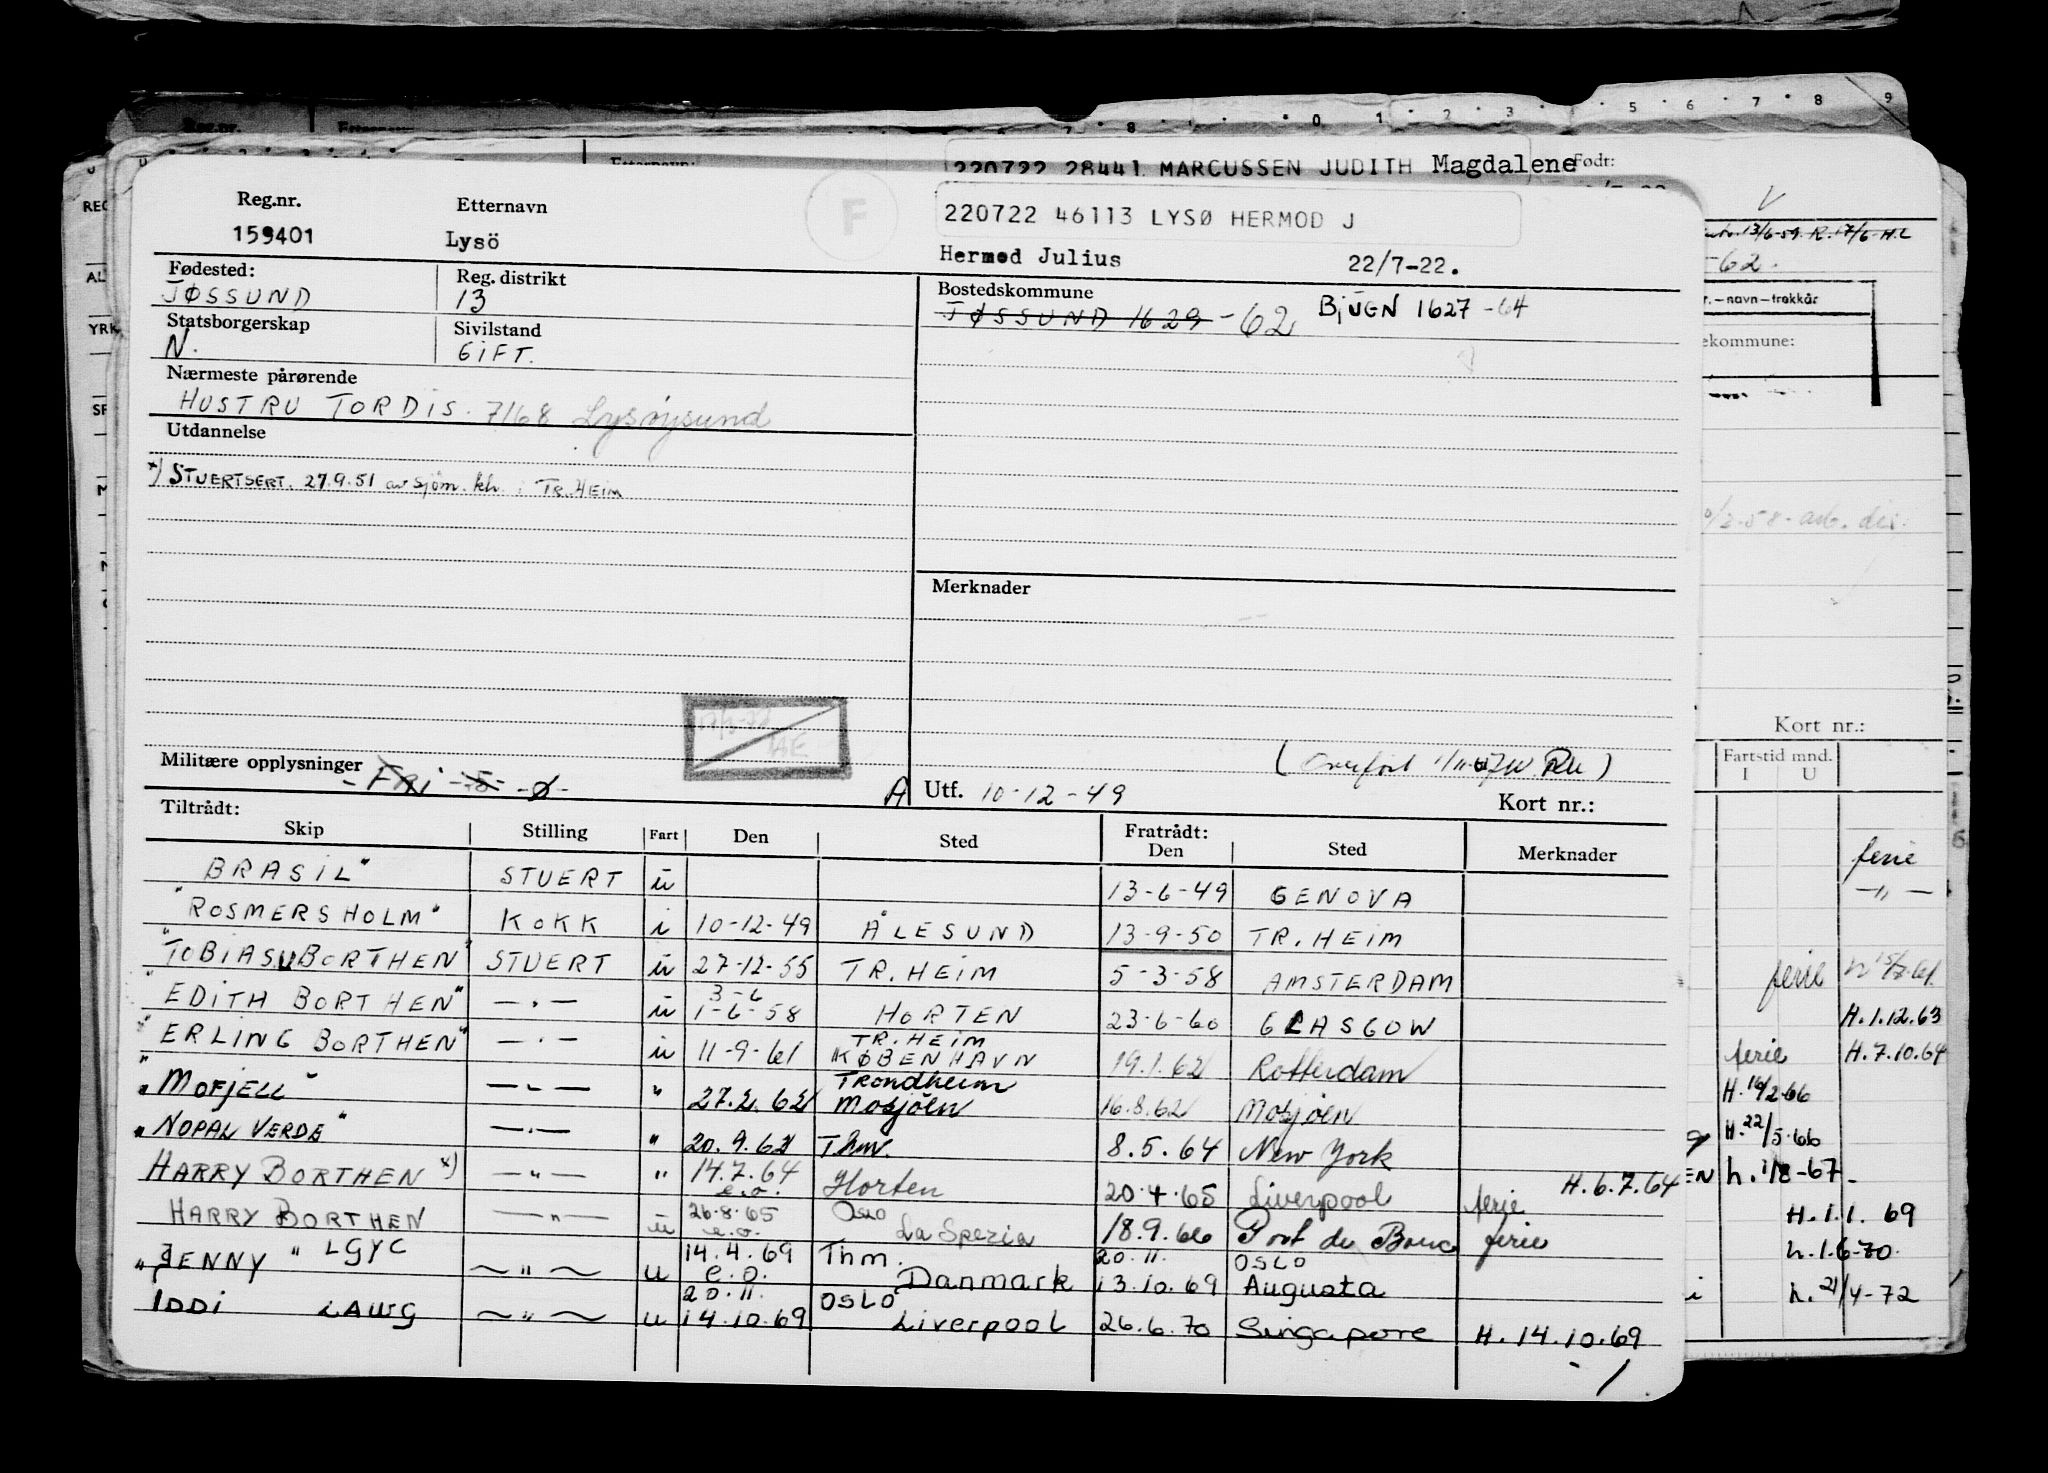 220722 28441 MARCUSSEN JUDITH Magdalene Født:
220722 46113 LYSØ HERMOD J
F
Reg.nr. Etternavn
159401 Lysö
Hermod Julius 22/7-22.
Fødested: Reg. distrikt
JØSSUND 13
Bostedskommune
JØSSUND 1629 -62 BJUGN 1627 -64
Statsborgerskap Sivilstand
N. GIFT.
Nærmeste pårørende
HUSTRU TORDIS. 7168 Lysøysund
Utdannelse
*) STUERTSERT. 27.9.51 av sjøm. kh. i TR.HEIM
Merknader
Militære opplysninger
- Fri -5- -Ø-
(Overført RU)
A Utf. 10-12-49 Kort nr.:
Tiltrådt: Fratrådt:
Skip Stilling Fart Den Sted Den Sted Merknader
BRASIL" STUERT u 13-6-49 GENOVA
"ROSMERSHOLM" KOKK i 10-12-49 ÅLESUND 13-9-50 TR.HEIM
"TOBIAS U BORTHEN" STUERT u 27-12-55 TR.HEIM 5-3-58 AMSTERDAM
3-6
"EDITH BORTHEN" —"— u 1-6-58 HORTEN 23-6-60 GLASGOW
TR.HEIM
"ERLING BORTHEN" —"— u 11-9-61 KØBENHAVN 19.1.62 Rotterdam
Trondheim
"MOFJELL" —"— " 27.2.62 Mosjøen 16.8.62 Mosjøen
"NOPAL VERDE" —"— " 20.9.62 Thm. 8.5.64 New York
HARRY BORTHEN *) —"— " 14.7.64 e.o. Horten 20.4.65 Liverpool ferie H.6.7.64
HARRY BORTHEN —"— u 26.8.65 e.o. Oslo La Spezia 18.9.66 Port de Bouc ferie
"JENNY" LGYC —"— u 14.4.69 e.o. Thm. Danmark 13.10.69 Augusta
20.11. OSLO
20.11. OSLO
IDDI LAWG —"— u 14.10.69 Liverpool 26.6.70 Singapore H. 14.10.69
1
-62.
r.—navn—trekkår
ekommune:
Kort nr.:
Fartstid mnd.
I U
ferie
—"—
ferie
H.1.12.63
ferie H.7.10.64
H.16/2.66
H.22/5.66
EN h. 1/8-67
H.1.1.69
h.1.6-70.
h. 21/4-72